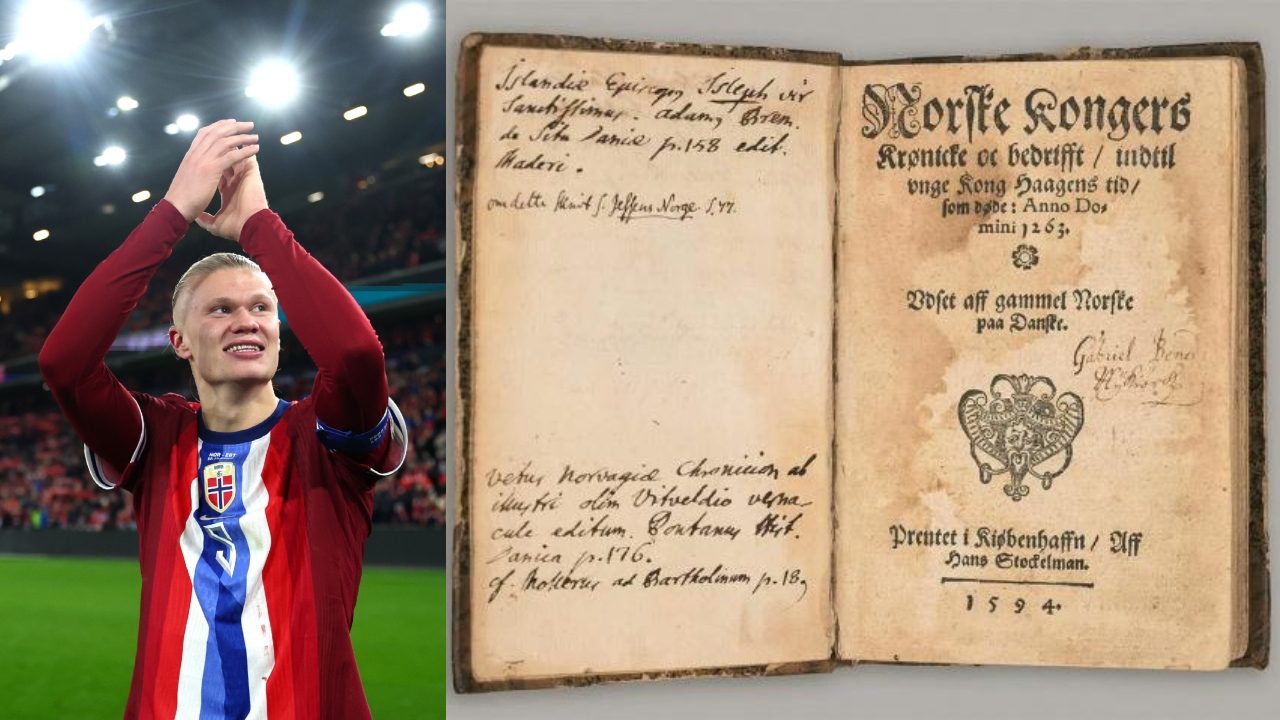 NOR - EST
9
Islandiæ Episcopus Isleph vir
Sanctissimus. Adamus Brem.
de Situ Daniæ p.158 edit.
Maderi.
om dette Skrift s. Jessens Norge S.47.
vetus Norvagiæ Chronicon ab
illustri olim Vitveldio verna-
cule editum. Pontanus Hist.
Danica p.176.
cf. Mollerus ad Bartholinum p.18
Norske Kongers
Krønicke oc bedrifft / indtil
vnge Kong Haagens tid /
som døde: Anno Do⸗
mini 1263.
Vdset aff gammel Norske
paa Danske.
Gabriel
Prentet i Kiøbenhaffn / Aff
Hans Stockelman.
1 5 9 4.